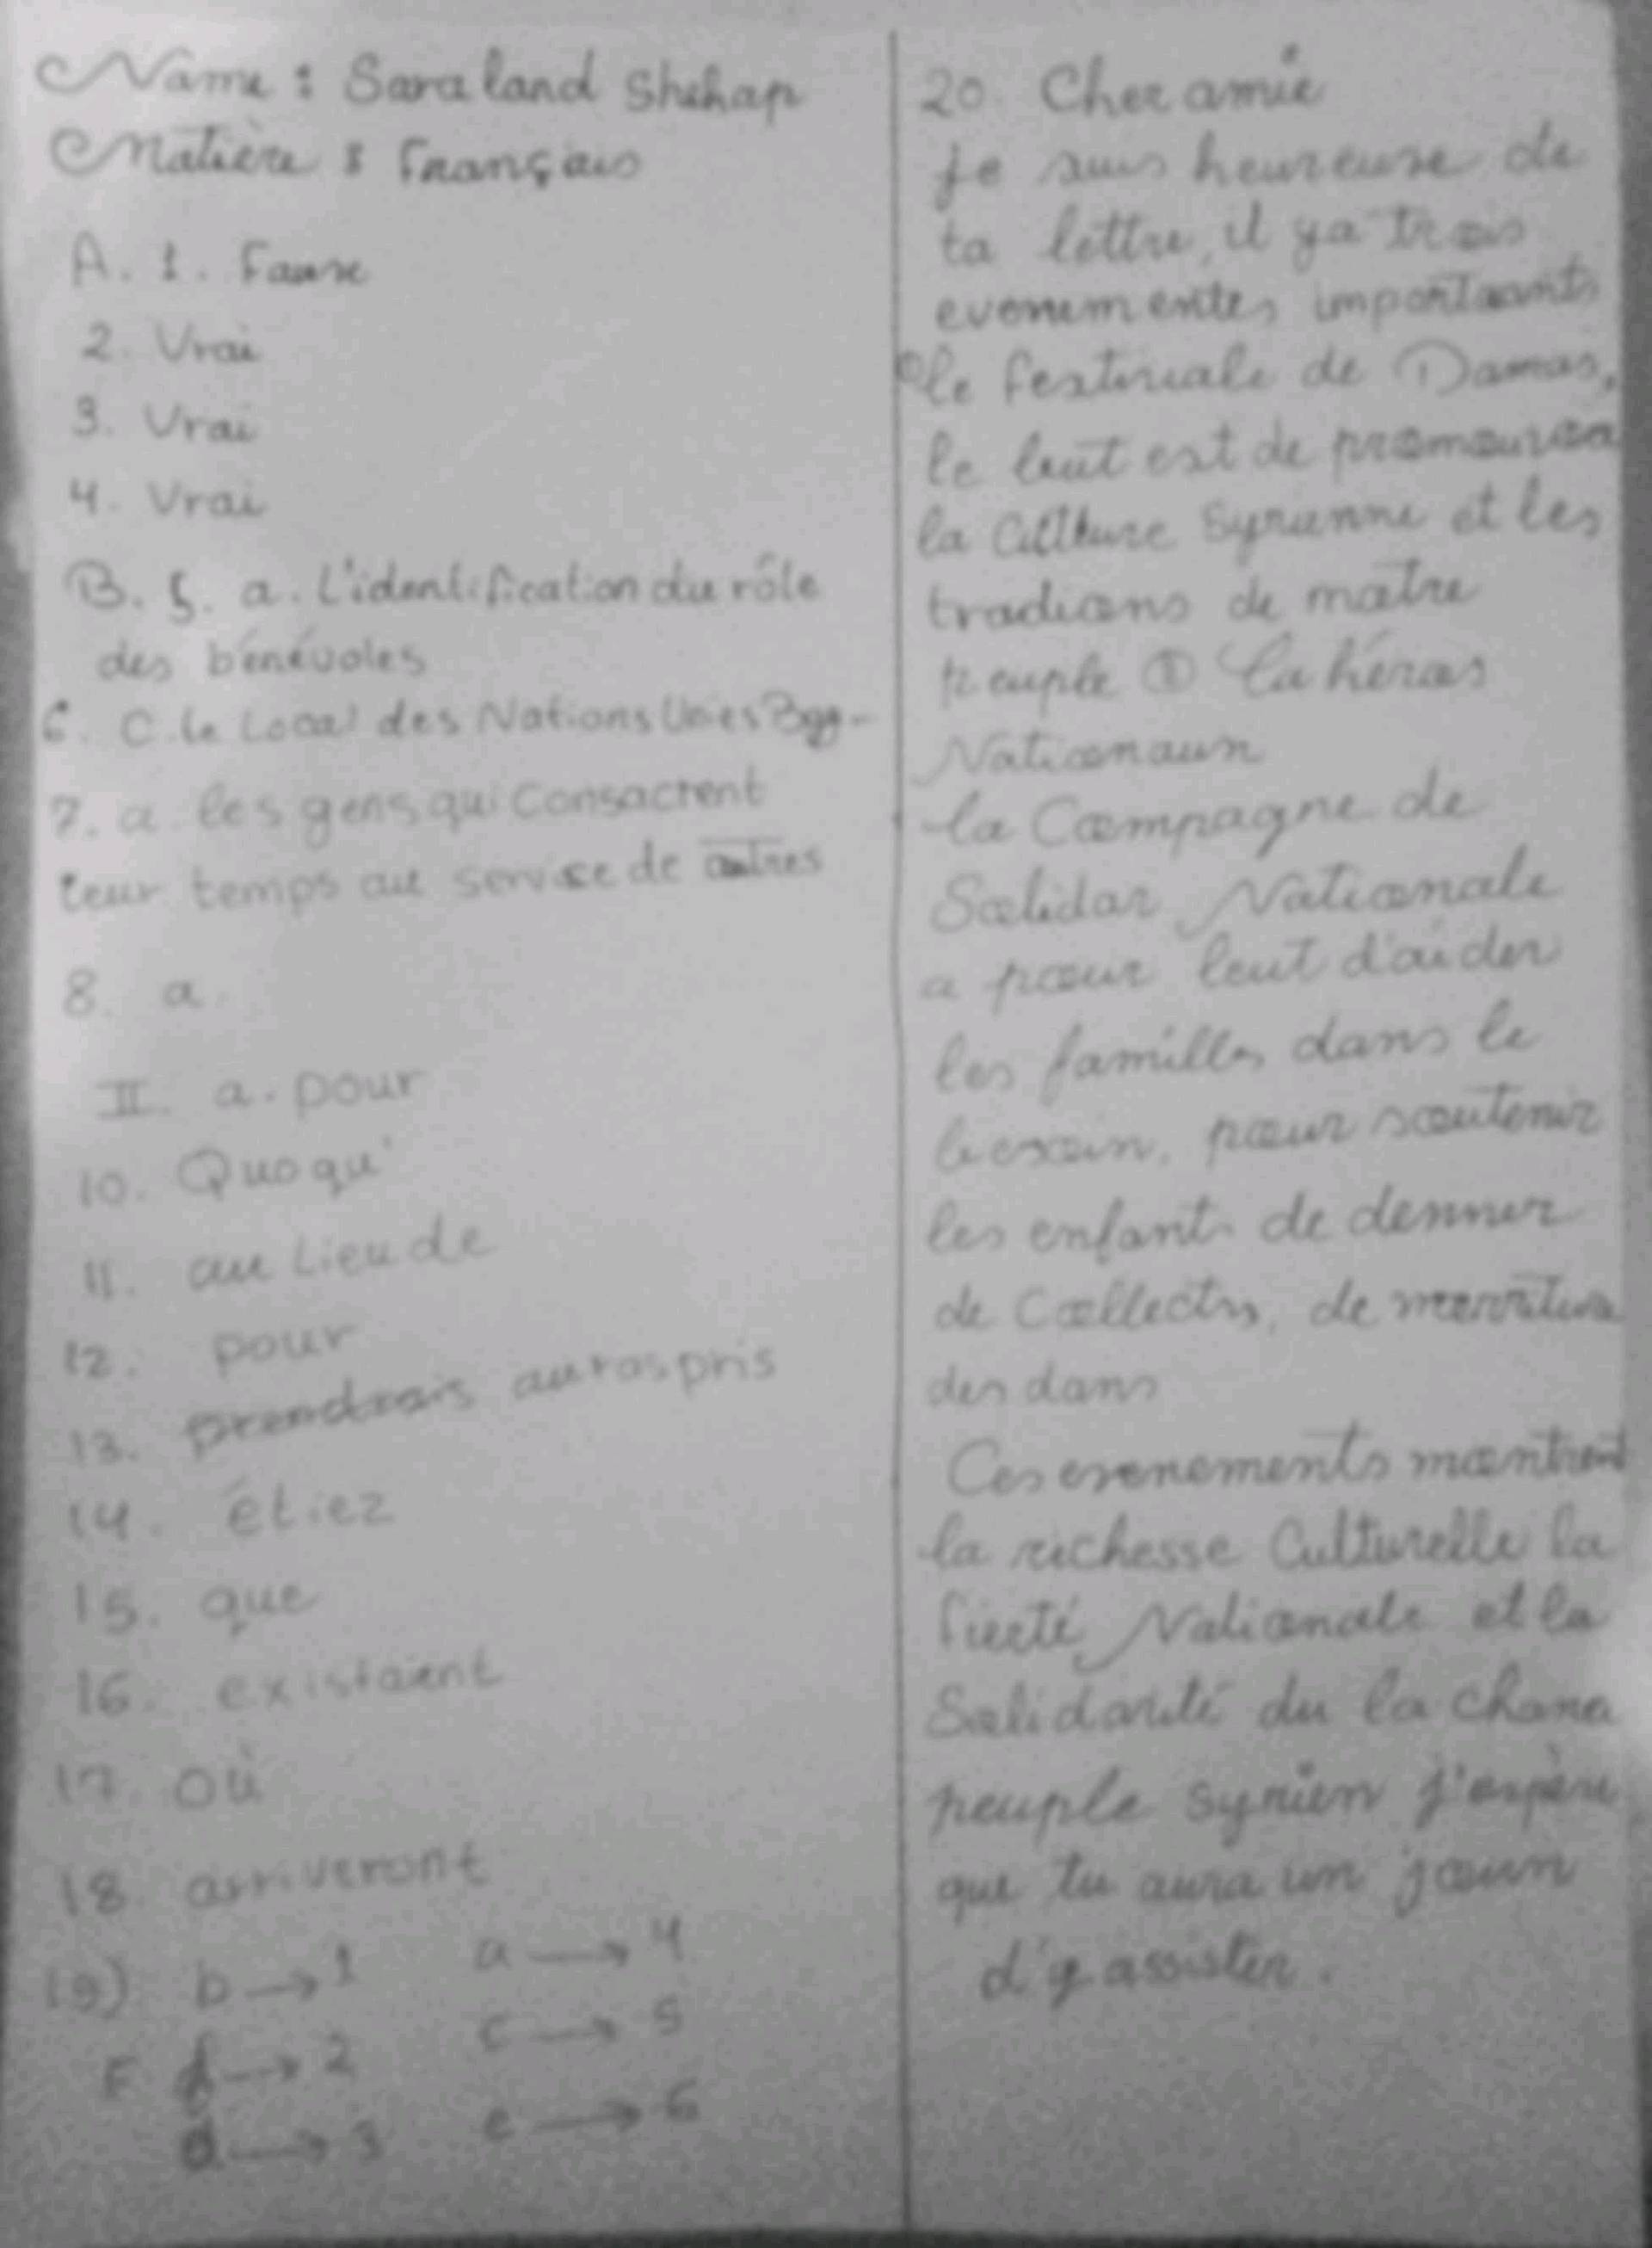 Name : Sara land Shehap
Matière : Français
A. 1. Fause
2. Vrai
3. Vrai
4. Vrai
B. 5. a. L'identification du rôle
des bénévoles
6. C. le Local des Nations Unies
7. a. les gens qui Consacrent
leur temps au service de autres
8. a
II. a. pour
10. Quoqu'
11. au Lieu de
12. pour
13. prendrais auras pris
14. étiez
15. que
16. existaient
17. où
18 arriveront
19) b → 1 a → 4
F f → 2 c → 5
d → 3 e → 6
20. Cher amie
je suis heureuse de
ta lettre, il ya trois
evenementes importants
le festivale de Damas,
le but est de
la Cultture Syrienne et les
tradions de notre
peuple la héros
Nationaux
la Compagne de
Solidar Nationale
a pour but d'aider
les familles dans le
besoin, pour soutenir
les enfants de denner
de Collectes, de
des dons
Ces evenements montrent
la richesse Culturelle la
fierté Nationale et la
Solidarité du la
peuple syrien j'espère
que tu aura un jour
d'y assister.